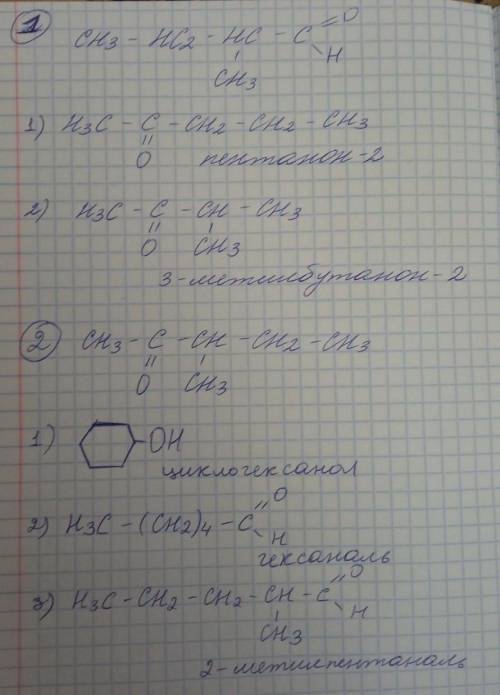 1
CH3 - HC2 - HC - C =O
H
CH3
1) H3C - C - CH2 - CH2 - CH3
O пентанон-2
2) H3C - C - CH - CH3
O CH3
3-метилбутанон-2
2 CH3 - C - CH - CH2 - CH3
O CH3
1) -OH
циклогексанол
2) H3C - (CH2)4 - C =O
H
гексаналь
3) H3C - CH2 - CH2 - CH - C =O
H
CH3
2-метилпентаналь